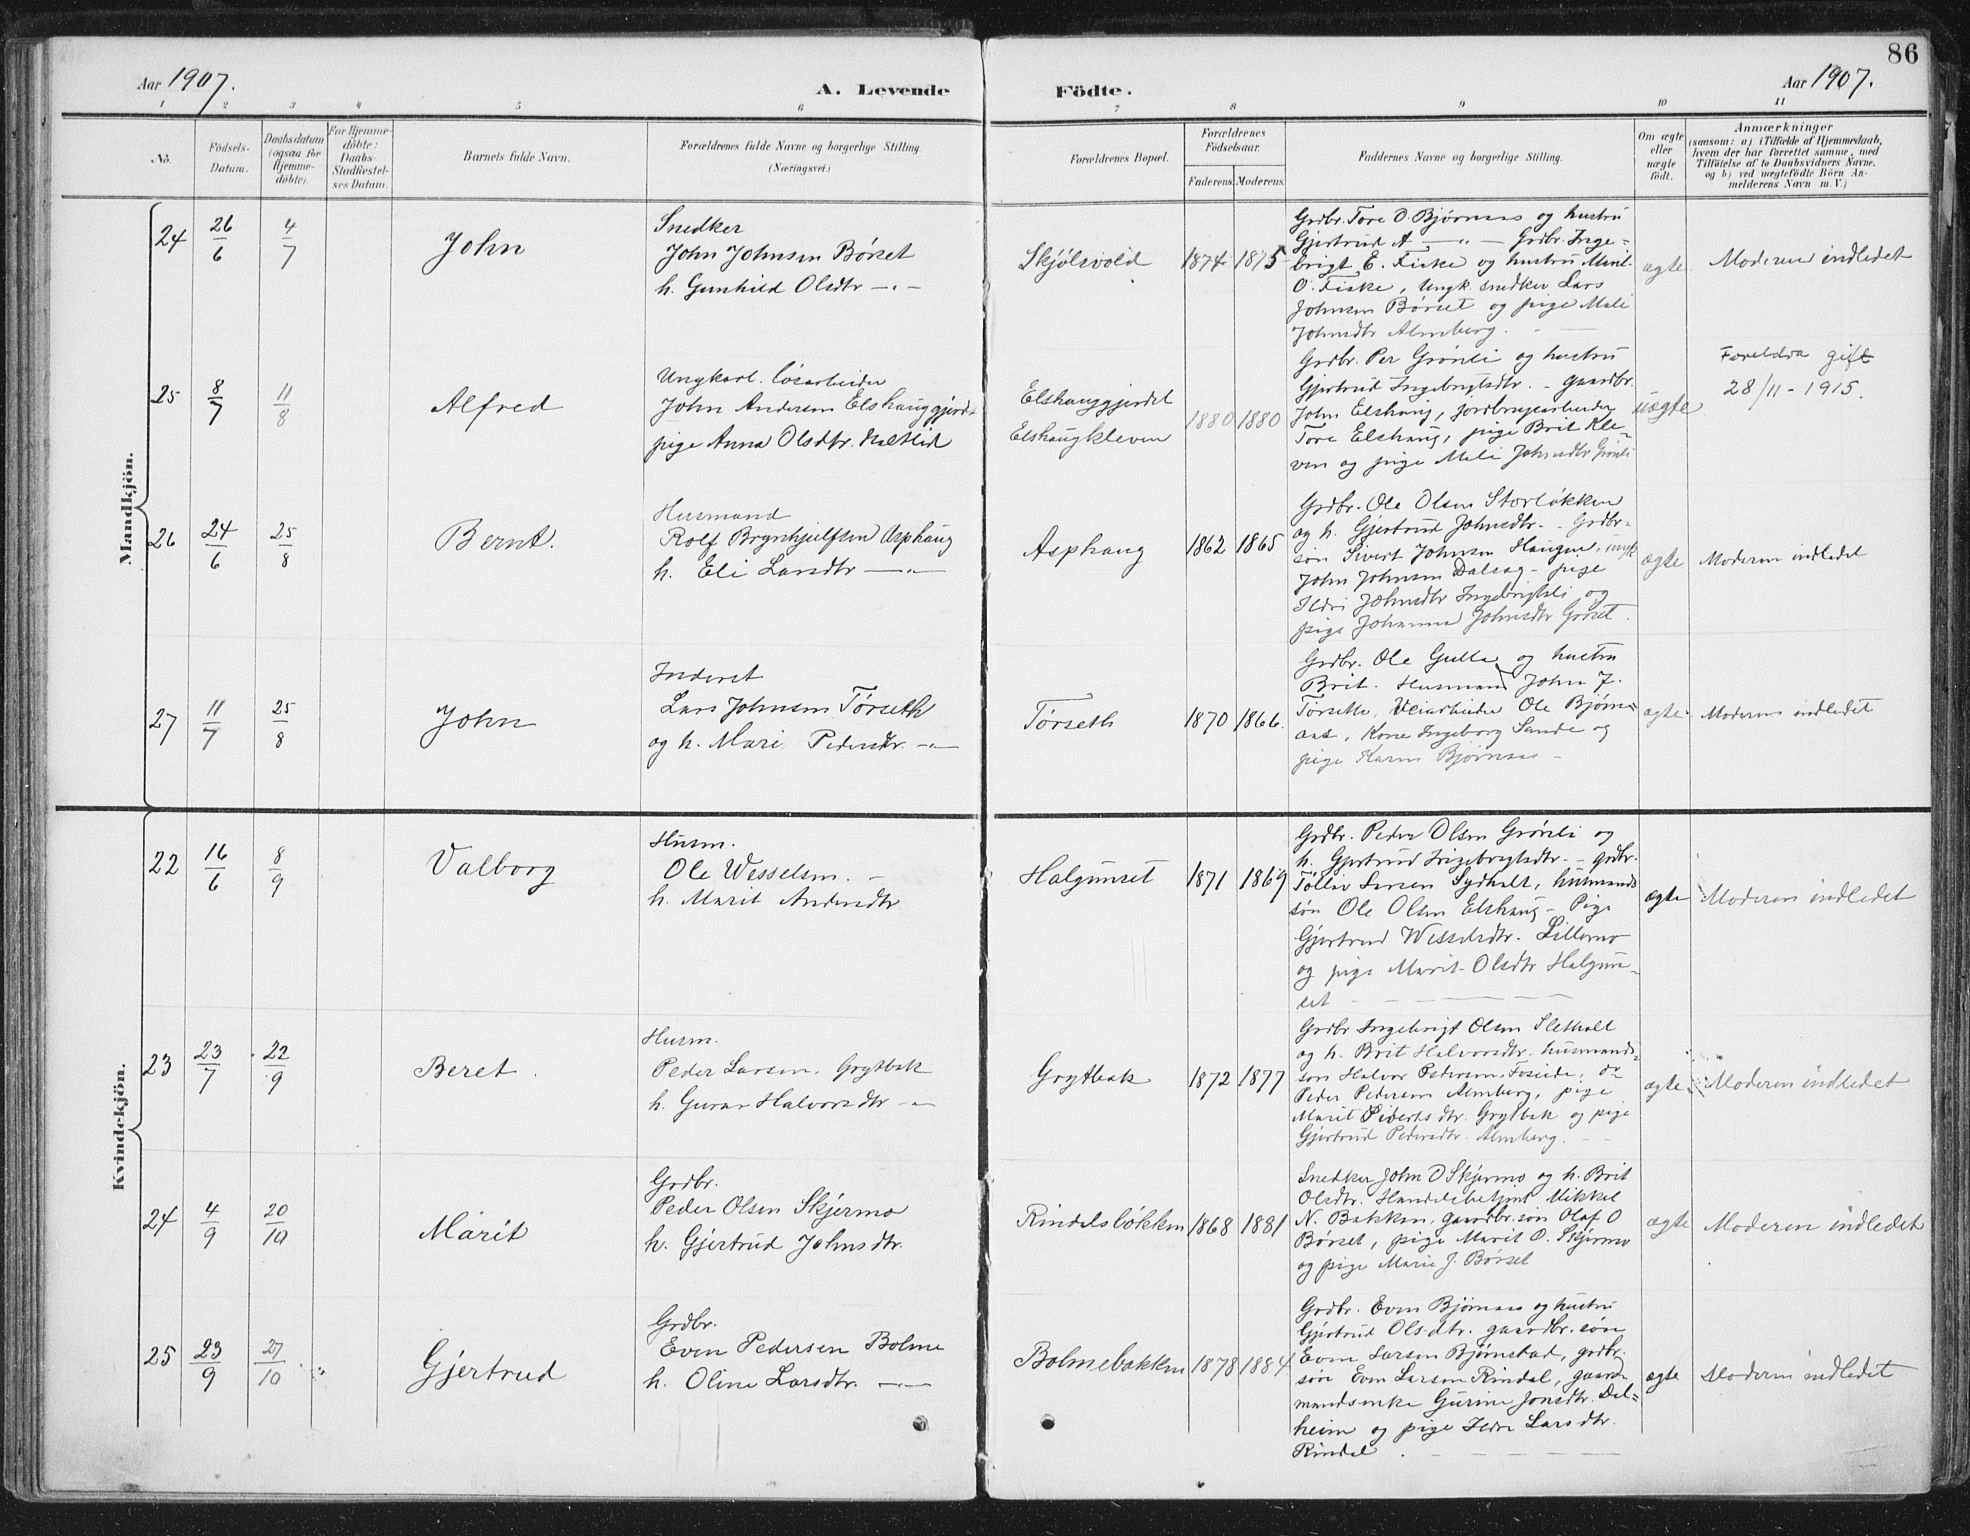 86
Aar 1907.
A. Levende Födte.
Aar 1907.
1 2 3 4 5 6 7 8 9 10 11
No.
Födsels-Datum.
Daabsdatum (ogsaa for Hjemme-döbte).
For Hjemme-döbte: Daabs-Stadfæstel-ses Datum.
Barnets fulde Navn.
Forældrenes fulde Navne og borgerlige Stilling.
(Næringsvei.)
Forældrenes Bopæl.
Forældrenes Födselsaar.
Faderens. Moderens.
Faddernes Navne og borgerlige Stilling.
Om ægte eller uægte födt.
Anmærkninger
(saasom: a) i Tilfælde af Hjemmedaab,
hvem der har forrettet samme, med
Tilföielse af to Daabsvidners Navne,
og b) ved uægtefödte Börn An-
melderens Navn m. V.)
Mandkjön.
24 26/6 4/7 John
Snedker
John Johnsen Börset
h. Gunhild Olsdtr —"—
Skjölsvold 1874 1875
Grdbr. Tore O Bjørnaas og hustru
Gjertrud A —"— Grdbr. Inge-
brigt E. Fiske og hustru Marit
O. Fiske, Ungk. snedker Lars
Johnsen Børset og pige Mali
Johnsdtr Almberg.
ægte. Moderen indledet
25 8/7 11/8 Alfred
Ungkarl. løsarbeider
John Andersen Elshauggjerdet
pige Anna Olsdtr.
Elshauggjerdet
Elshaugkleven
1880 1880
Grdbr. Per Grönli og hustru
Gjertrud Ingebrigtsdtr. - gaardbr.
John Elshaug, jordbrugsarbeider
Tore Elshaug, pige Brit Kle-
ven og pige Mali Johnsdtr Grönli
uægte
Foreldra gift
28/11 - 1915.
26 24/6 25/8 Bernt.
Husmand
Rolf Brynhjulfsen Asphaug
h. Eli Larsdtr —"—
Asphaug 1862 1865
Grdbr. Ole Olsen Storløkken
og h. Gjertrud Johnsdtr. - Grdbr-
søn Sivert Johnsen Haugen, ungk
John Johnsen Dalsag - pige
Ildri Johnsdtr Ingebrigtsli og
pige Johanna Johnsdtr Gørset.
ægte Moderen indledet
27 11/7 25/8 John
Inderst
Lars Johnsen Tørseth
og h. Mari Pedersdtr. —"—
Tørseth 1870 1866.
Grdbr. Ole Gulla og hustru
Brit. Husmand John J.
Tørseth, Veiarbeider Ole Bjørn-
aas, Kone Ingeborg Sande og
pige Karen Bjørnaas -
ægte. Moderen indledet
Kvindekjön.
22 16/6 8/9 Valborg
Husm.
Ole Wesselsen. —
h. Marit Andersdtr
Halgunset 1871 1869
Grdbr. Peder Olsen Grönli og
h. Gjertrud Ingebrigtsdtr. - grdbr.
Tollev Larsen Sydhalt, husmands
søn Ole Olsen Elshaug - Pige
Gjertrud Wesselsdtr. Lillemo
og pige Marit Olsdtr Halgun-
set
ægte Moderen indledet
23 23/7 22/9 Beret.
Husm.
Peder Larsen. Grytbak
h. Guru Halvorsdtr —"—
Grytbak 1872 1877
Grdbr Ingebrigt Olsen Sletholt
og h. Brit Halvorsdtr. husmands-
søn Halvor Pedersen Foseide, do
Peder Pedersen Almberg, pige
Marit Sivertsdtr. Grytbak og pige
Gjertrud Pedersdtr. Almberg.
ægte Moderen indledet
24 4/9 20/10 Marit
Grdbr.
Peder Olsen Skjermo
h. Gjertrud Johnsdtr.
Rindalsløkken 1868 1881
Snedker John O Skjermo og h. Brit
Olsdtr. Handelsbetjent Mikkel
N. Bakken, gaardbr. søn Olaf O
Børset, pige Marit O. Skjermo
og pige Marie J. Børset
ægte Moderen indledet
25 23/9 27/10 Gjertrud
Grdbr.
Even Pedersen Bolme
h. Oline Larsdtr. —"—
Bolmebakken 1878 1884
Grdbr. Even Bjørnaas og hustru
Gjertrud Olsdtr. gaardbr. søn
Even Larsen Bjørnstad, grdbr.
søn Even Larsen Rindal, gaard-
mandsenke Gurine Jonsdtr. Dal-
heim og pige Ildri Larsdtr.
Rindal.
ægte Moderen indledet